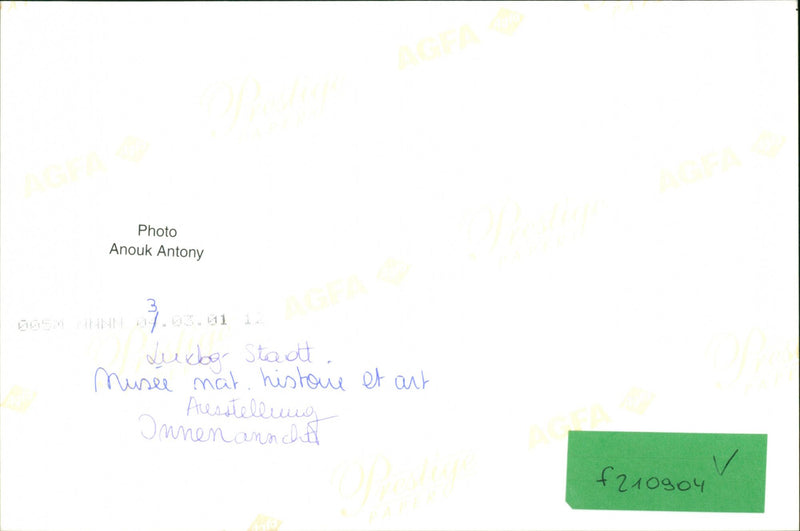 AGFA
Prestige
PAPER
AGFA
AGFA
Prestige
PAPER
Photo
Anouk Antony
AGFA
3
.03.01 12
Prestige
Luxbg Stadt.
Musée nat. histoire et art
Ausstellung
Innenansicht
AGFA
Prestige
PAPER
Prestige
PAPER
f210904 √